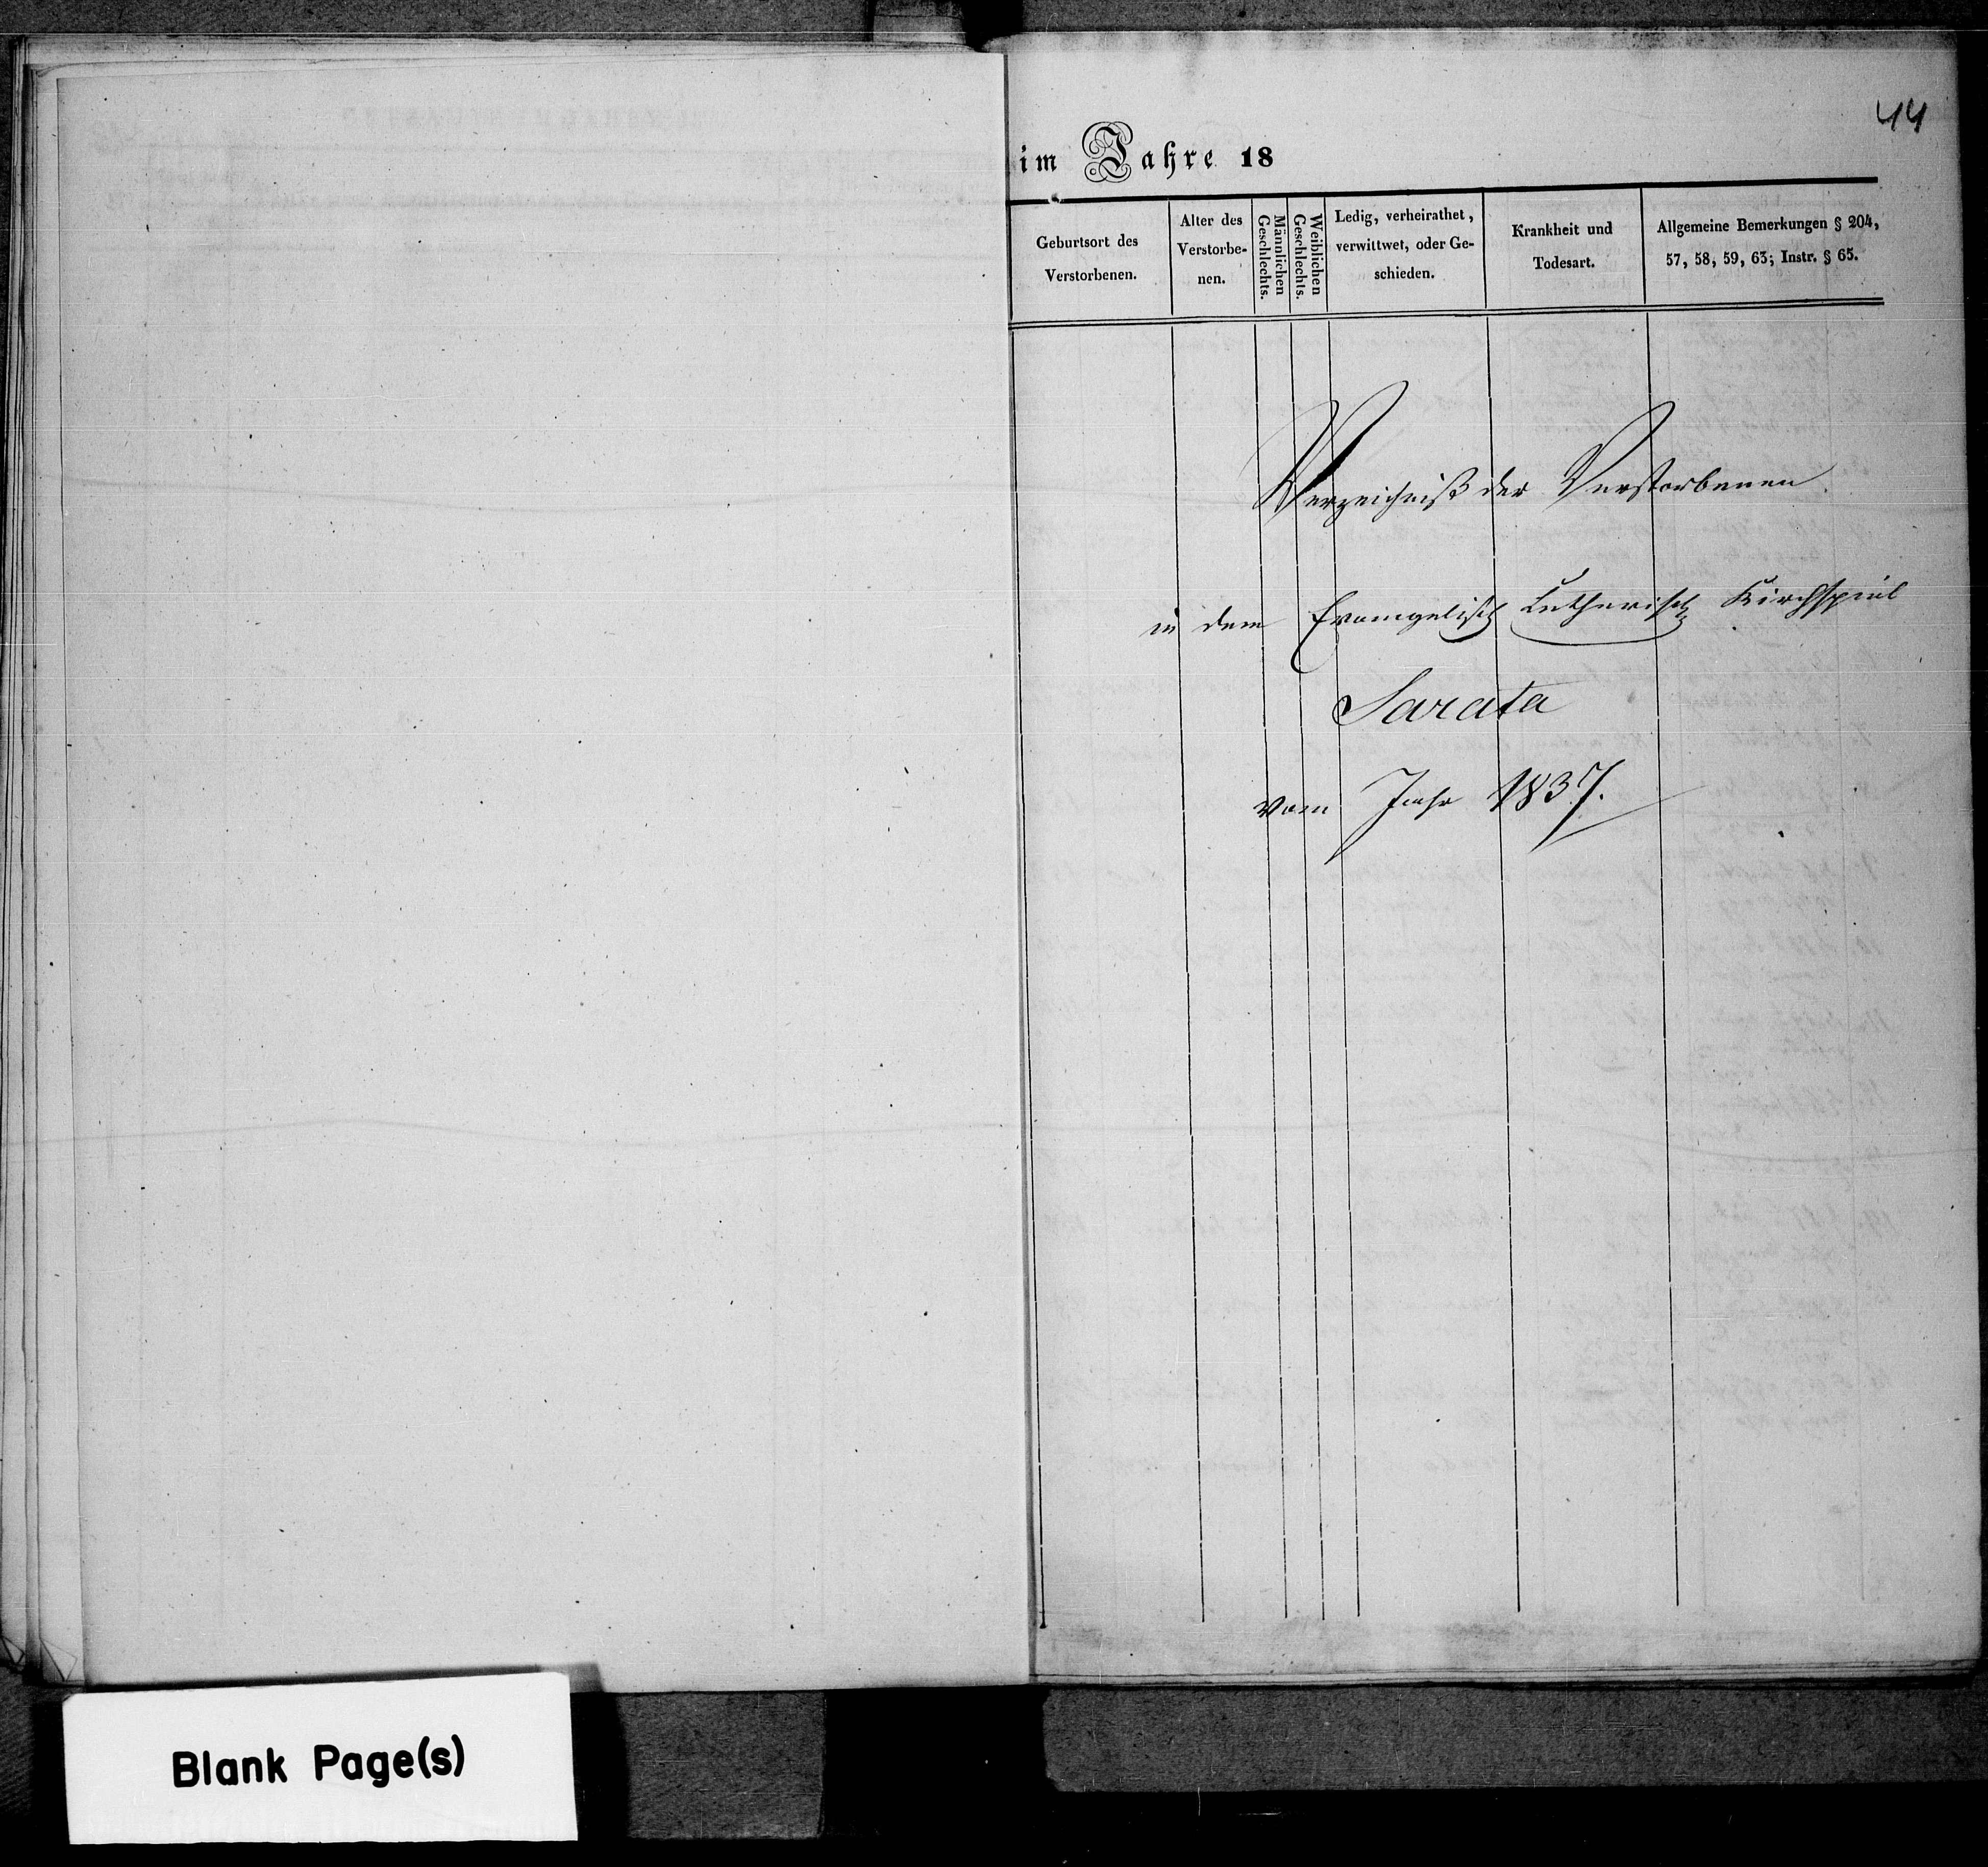 44
im Jahre 18
Geburtsort des
Verstorbenen.
Alter des
Verstorbe-
nen.
Männlichen
Geschlechts.
Weiblichen
Geschlechts.
Ledig, verheirathet,
verwittwet, oder Ge-
schieden.
Krankheit und
Todesart.
Allgemeine Bemerkungen § 204,
57, 58, 59, 63; Instr. § 65.
Verzeichniß der Verstorbenen
in dem Evangelisch Lutherisch Kirchspiel
Sarata
vom Jahr 1837.
Blank Page(s)